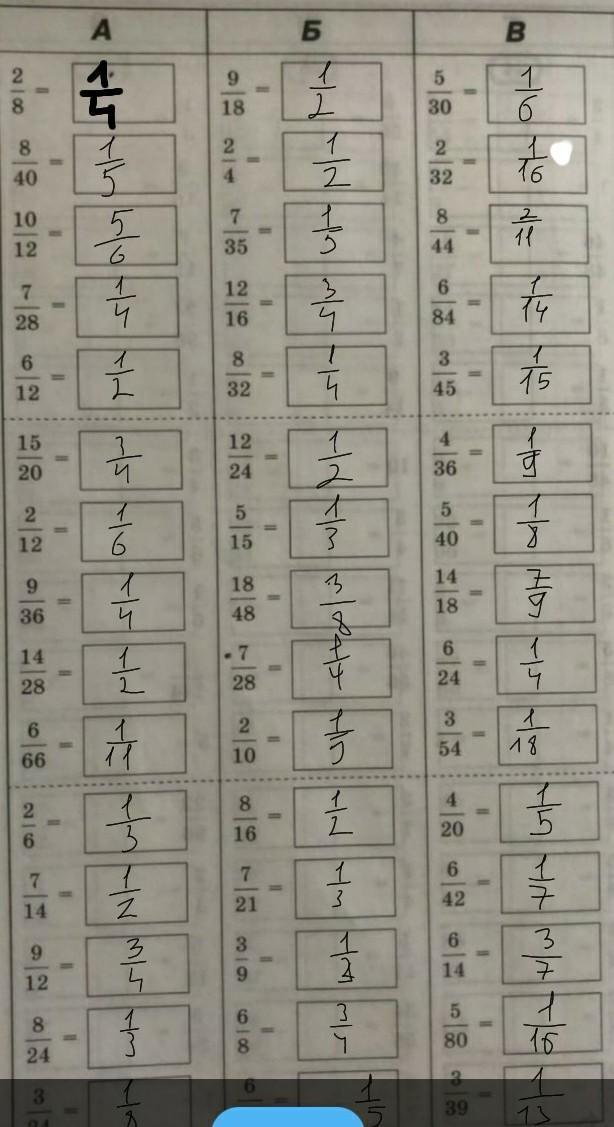 А Б В
2/8 = 1/4 9/18 = 1/2 5/30 = 1/6
8/40 = 1/5 2/4 = 1/2 2/32 = 1/16
10/12 = 5/6 7/35 = 1/5 8/44 = 2/11
7/28 = 1/4 12/16 = 3/4 6/84 = 1/14
6/12 = 1/2 8/32 = 1/4 3/45 = 1/15
15/20 = 3/4 12/24 = 1/2 4/36 = 1/9
2/12 = 1/6 5/15 = 1/3 5/40 = 1/8
9/36 = 1/4 18/48 = 3/8 14/18 = 7/9
14/28 = 1/2 7/28 = 1/4 6/24 = 1/4
6/66 = 1/11 2/10 = 1/5 3/54 = 1/18
2/6 = 1/3 8/16 = 1/2 4/20 = 1/5
7/14 = 1/2 7/21 = 1/3 6/42 = 1/7
9/12 = 3/4 3/9 = 1/3 6/14 = 3/7
8/24 = 1/3 6/8 = 3/4 5/80 = 1/16
3/24 = 1/8 6 = 1/5 3/39 = 1/13